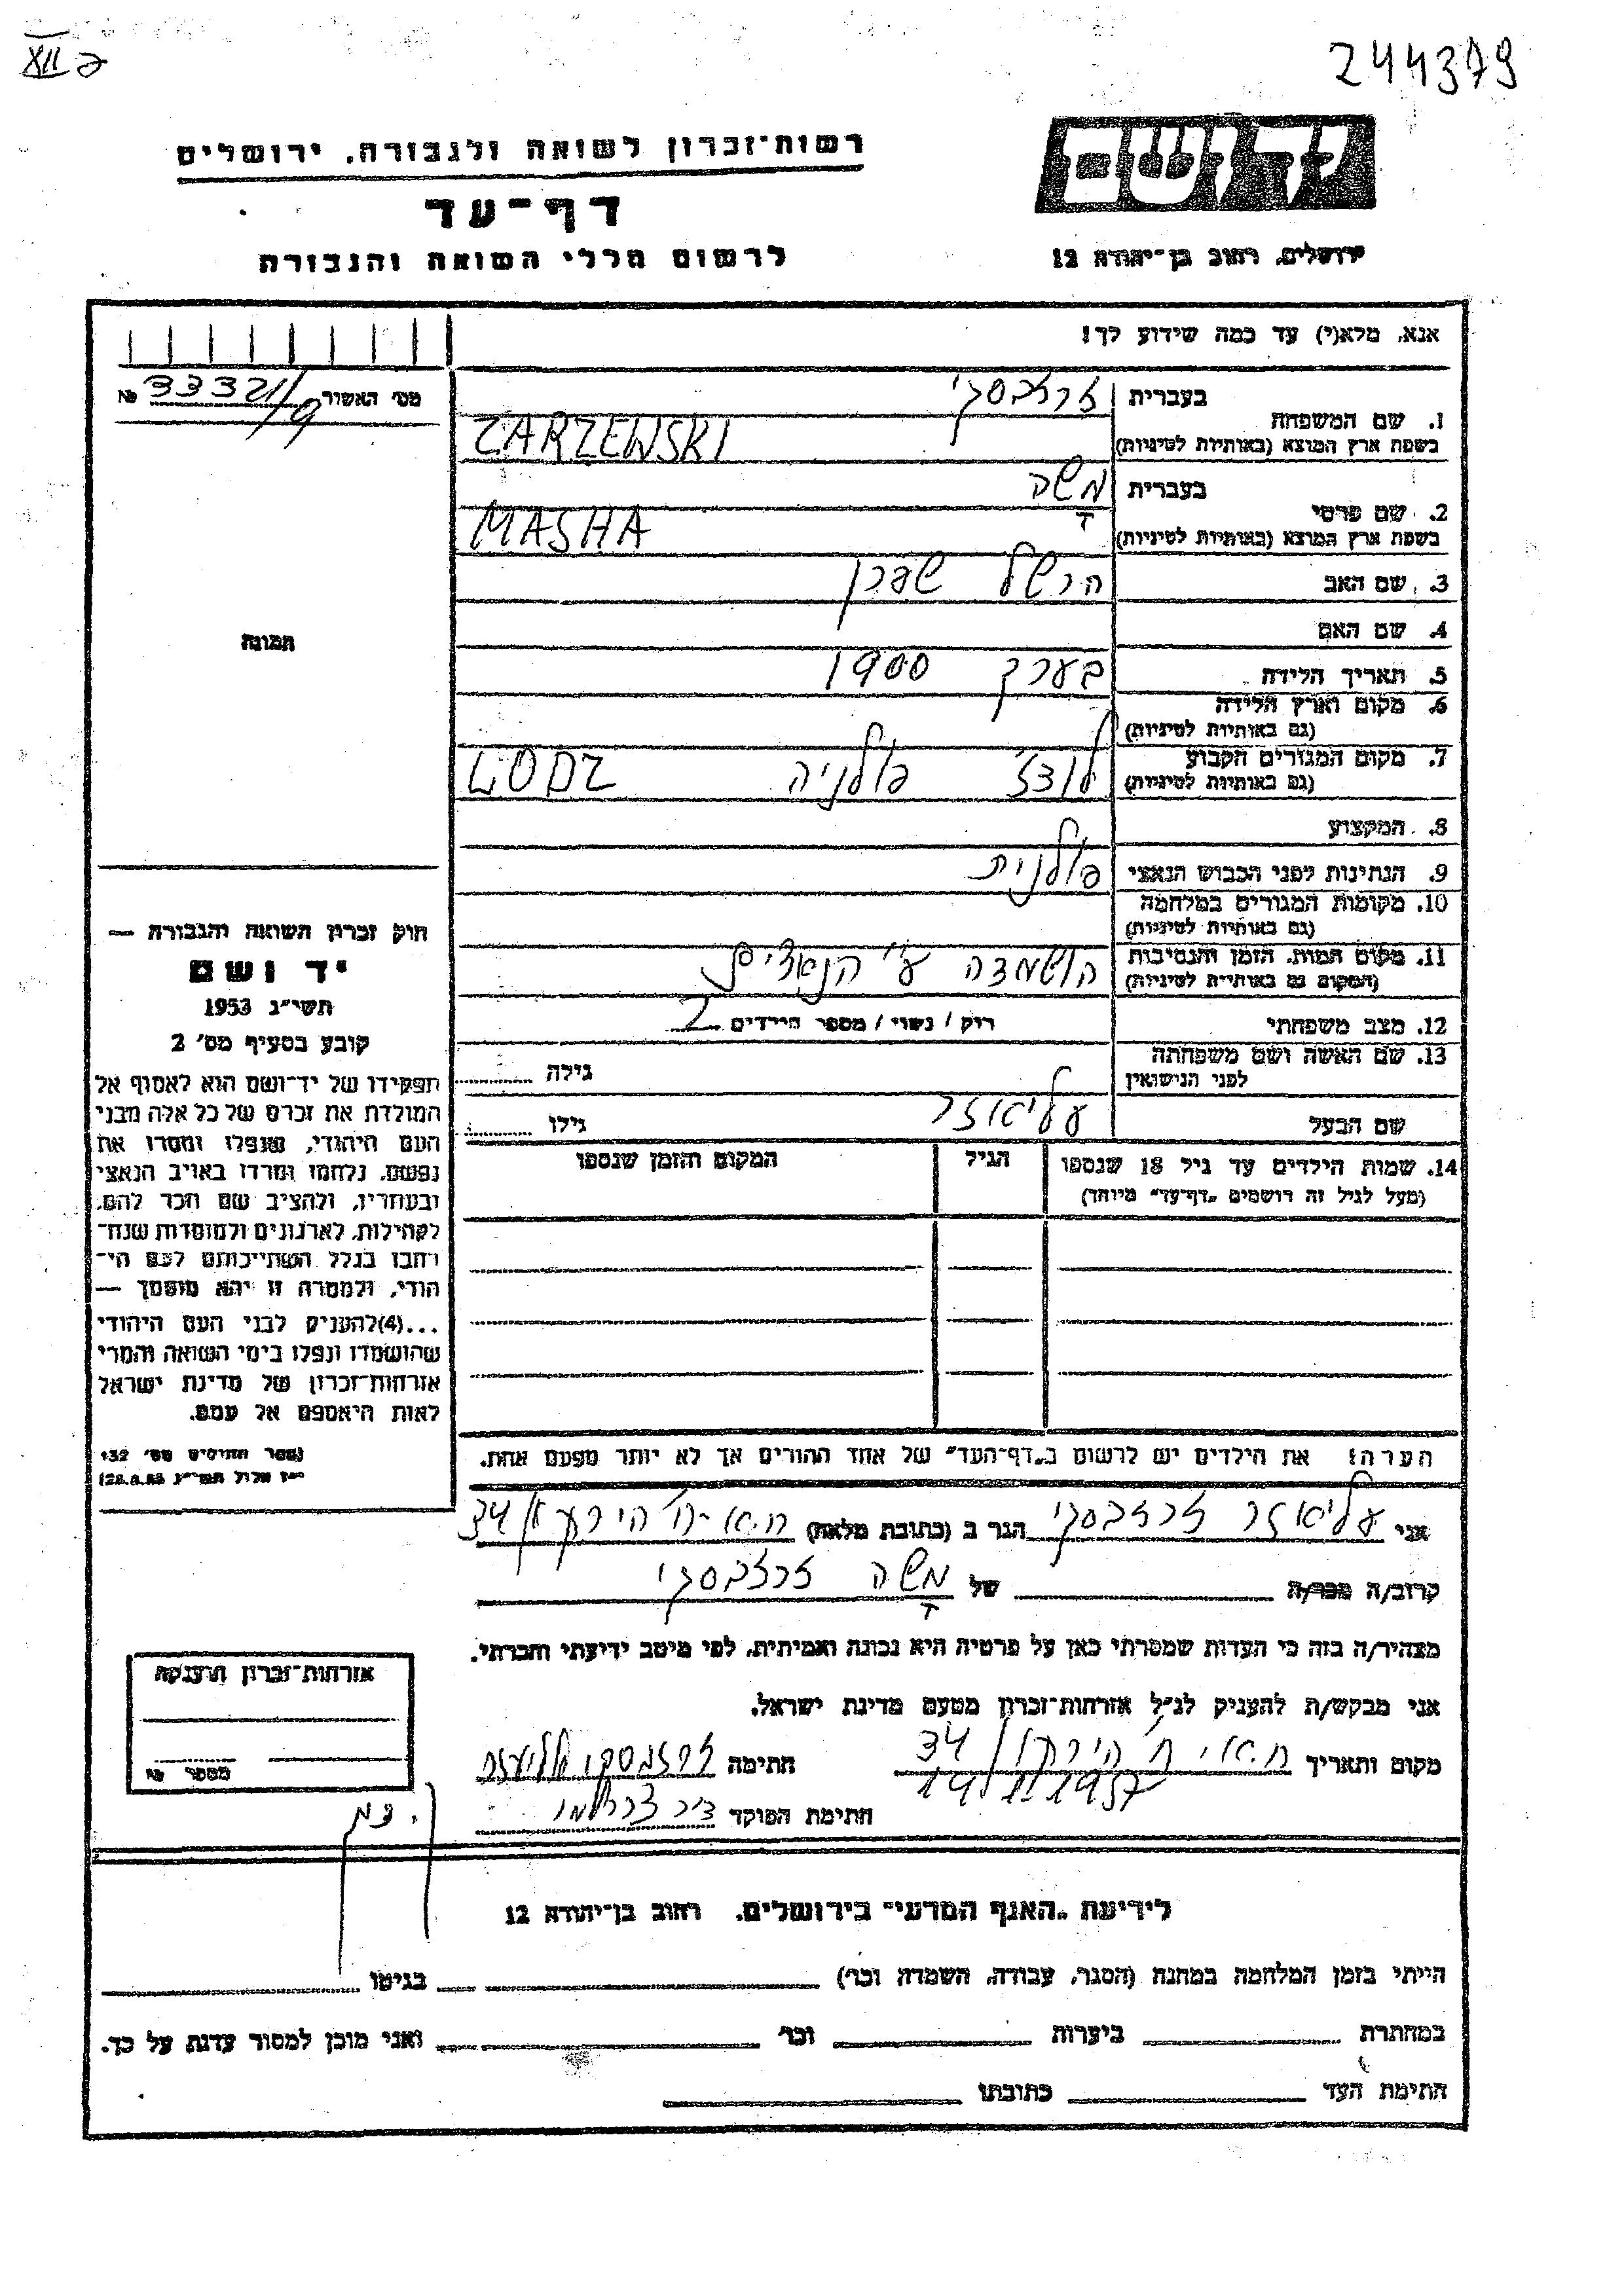 XII ב
244379
יד ושם
ירושלים, רחוב בן־יהודה 12
רשות־זכרון לשואה ולגבורה, ירושלים
דף־עד
לרשום חללי השואה והגבורה
אנא, מלא(י) עד כמה שידוע לך!
מס׳ האשור 33321/9 №
1. שם המשפחה
בעברית זרזבסקי
בשפת ארץ המוצא (באותיות לטיניות) ZARZEWSKI
2. שם פרטי
בעברית מָשה
בשפת ארץ המוצא (באותיות לטיניות) MASHA
3. שם האב הרשל
4. שם האם
5. תאריך הלידה בערך 1900
6. מקום וארץ הלידה
(גם באותיות לטיניות)
7. מקום המגורים הקבוע לודז פולניה LODZ
(גם באותיות לטיניות)
8. המקצוע
9. הנתינות לפני הכבוש הנאצי פולנית
10. מקומות המגורים במלחמה
(גם באותיות לטיניות)
11. מקום המות, הזמן והנסיבות הושמדה ע״י הנאצים
(המקום גם באותיות לטיניות)
12. מצב משפחתי רוק / נשוי / מספר הילדים 2
13. שם האשה ושם משפחתה
לפני הנישואין
גילה
שם הבעל עליאזר גילו
14. שמות הילדים עד גיל 18 שנספו
(מעל לגיל זה רושמים „דף־עד״ מיוחד)
הגיל
המקום והזמן שנספו
הערה: את הילדים יש לרשום ב„דף־העד״ של אחד ההורים אך לא יותר מפעם אחת.
תמונה
חוק זכרון השואה והגבורה —
יד ושם
תשי״ג 1953
קובע בסעיף מס׳ 2
תפקידו של יד־ושם הוא לאסוף אל
המולדת את זכרם של כל אלה מבני
העם היהודי, שנפלו ומסרו את
נפשם, נלחמו ומרדו באויב הנאצי
ובעוזריו, ולהציב שם וזכר להם,
לקהילות, לארגונים ולמוסדות שנח־
רבו בגלל השתייכותם לעם הי־
הודי, ולמטרה זו יהא מוסמך —
...(4)להעניק לבני העם היהודי
שהושמדו ונפלו בימי השואה והמרי
אזרחות־זכרון של מדינת ישראל
לאות היאספם אל עמם.
(ספר החוקים מס׳ 132
י״ז אלול תשי״ג 28.8.53)
אני עליאזר זרזבסקי הגר ב (כתובת מלאה) 34
קרוב/ה מכר/ה של מָשה זרזבסקי
מצהיר/ה בזה כי העדות שמסרתי כאן על פרטיה היא נכונה ואמיתית, לפי מיטב ידיעתי והכרתי.
אני מבקש/ת להעניק לנ״ל אזרחות־זכרון מטעם מדינת ישראל.
מקום ותאריך 34 חתימה
14/1 1957
חתימת הפוקד
אזרחות־זכרון הוענקה
מספר №
לידיעת „האגף המדעי״ בירושלים, רחוב בן־יהודה 12
הייתי בזמן המלחמה במחנה (הסגר, עבודה, השמדה וכו׳) בגיטו
במחתרת ביערות וכו׳ ואני מוכן למסור עדות על כך.
חתימת העד כתובתו